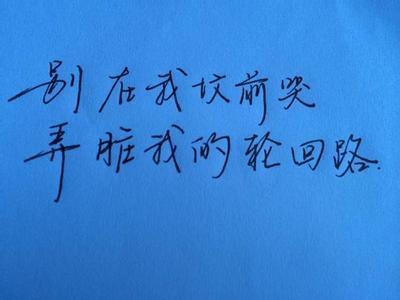 别在我坟前哭
弄脏我的轮回路.